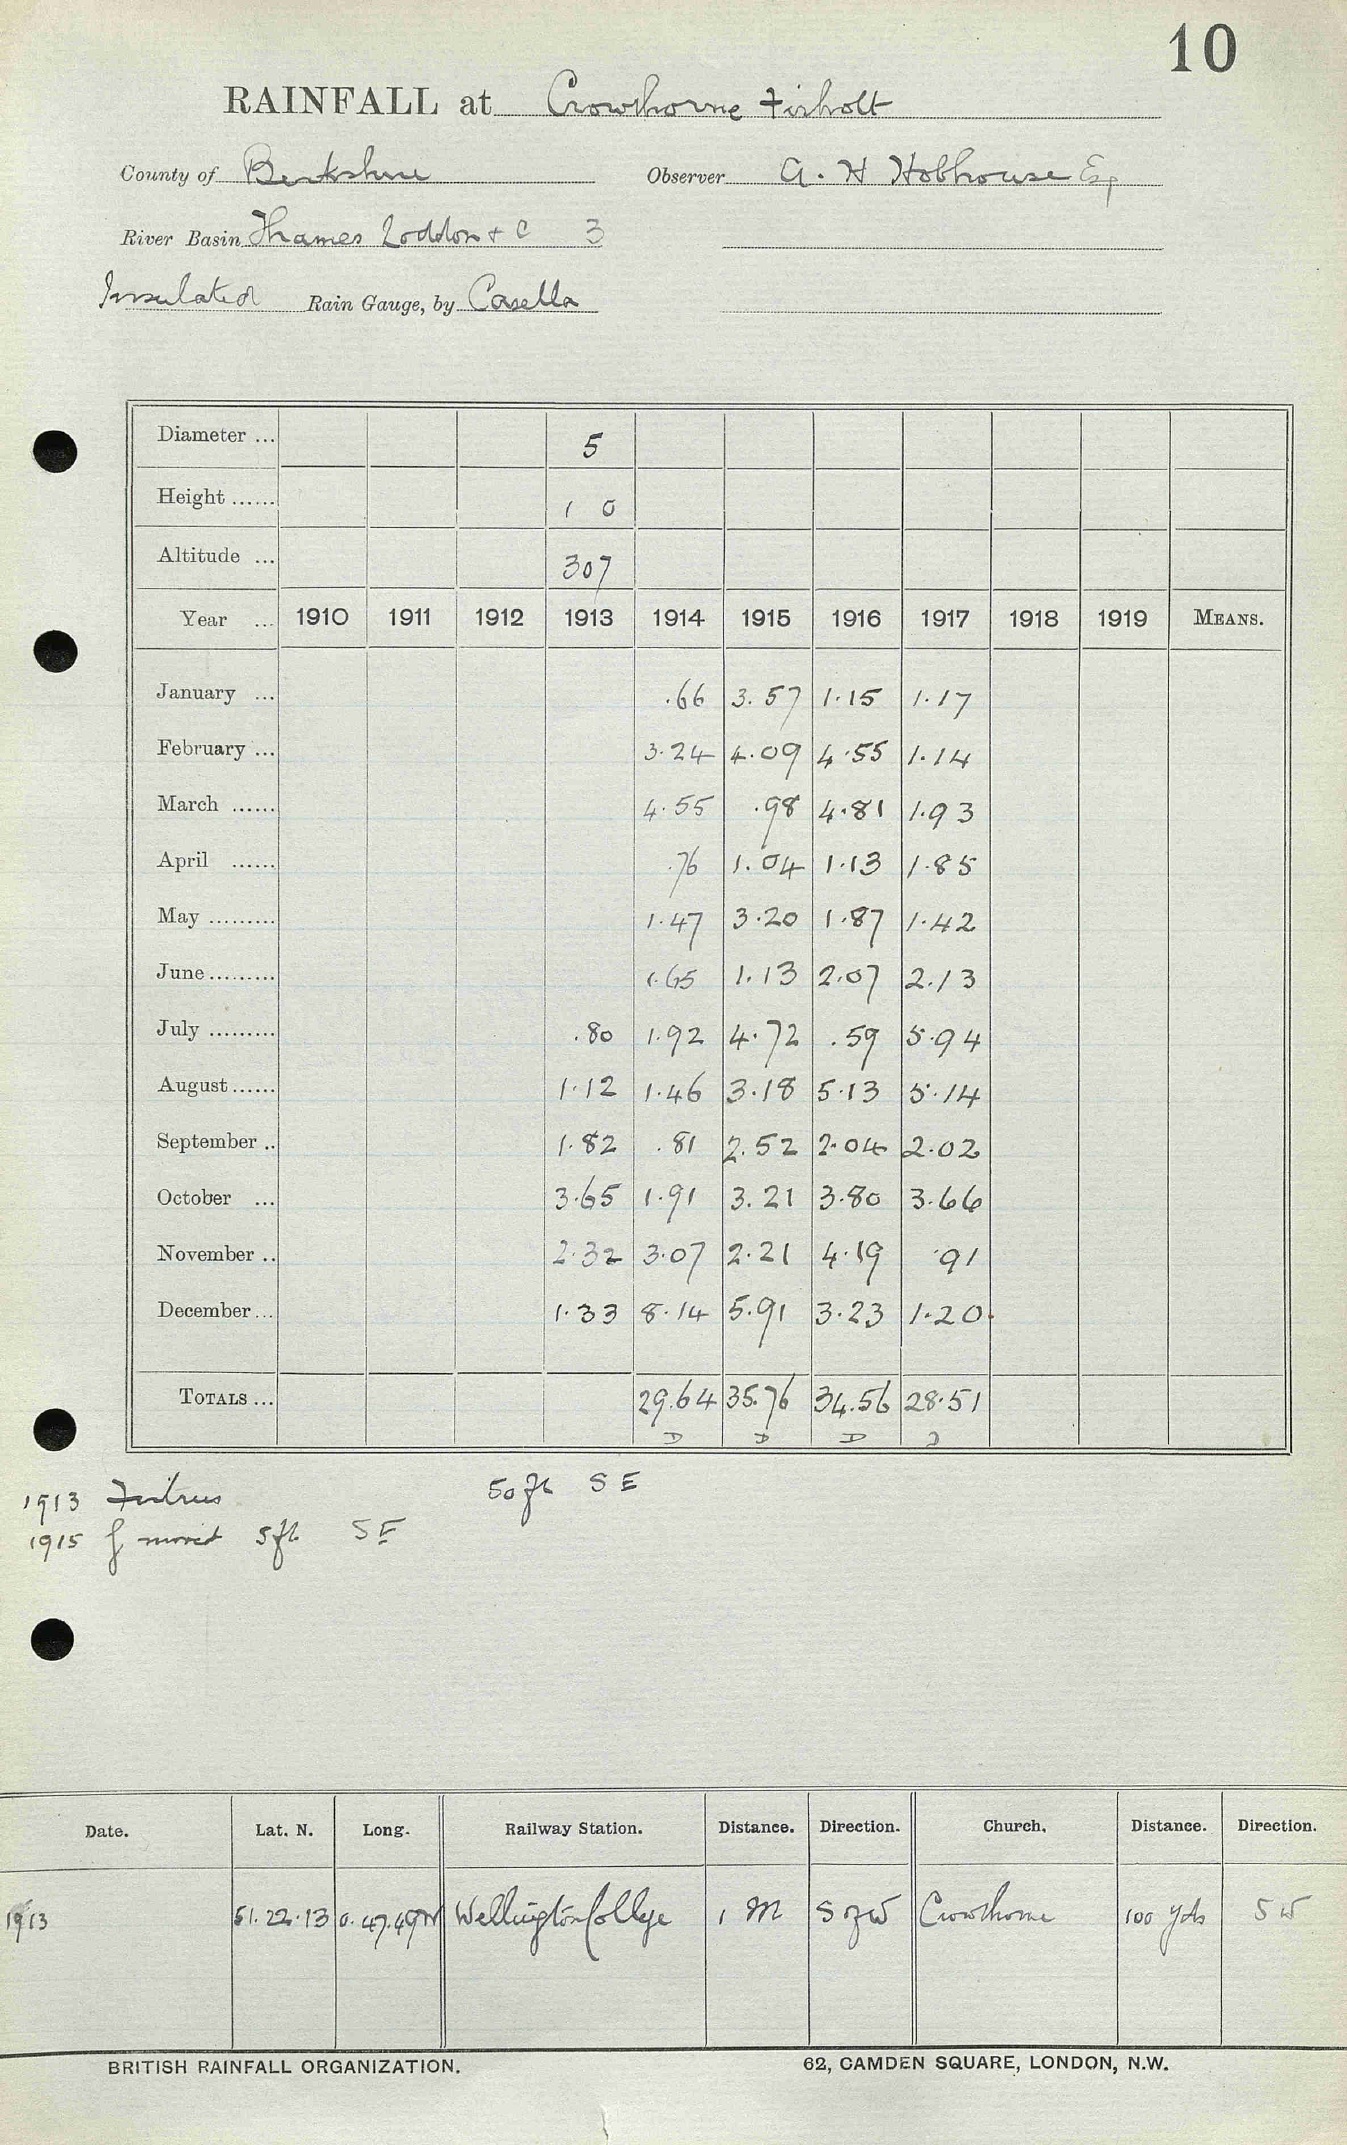 10
RAINFALL at Crowthorne Firholt
County of Berkshire Observer A. H Hobhouse Esq
River Basin Thames Loddon & C 3
Insulated Rain Gauge, by Casella
Diameter ... 5
Height ...... 1 0
Altitude ... 307
Year ... 1910 1911 1912 1913 1914 1915 1916 1917 1918 1919 MEANS.
January ... .66 3.57 1.15 1.17
February ... 3.24 4.09 4.55 1.14
March ...... 4.55 .98 4.81 1.93
April ...... .76 1.04 1.13 1.85
May ......... 1.47 3.20 1.87 1.42
June ......... 1.65 1.13 2.07 2.13
July ......... .80 1.92 4.72 .59 5.94
August ...... 1.12 1.46 3.18 5.13 5.14
September .. 1.82 .81 2.52 2.04 2.02
October ... 3.65 1.91 3.21 3.80 3.66
November .. 2.32 3.07 2.21 4.19 .91
December ... 1.33 8.14 5.91 3.23 1.20
TOTALS ... 29.64 35.76 34.56 28.51
D D D D
1913 50 ft S E
1915 g moved 5 ft S E
Date. Lat. N. Long. Railway Station. Distance. Direction. Church. Distance. Direction.
1913 51.22.13 0.47.49W Wellington College 1 M S of W Crowthorne 100 yds S W
BRITISH RAINFALL ORGANIZATION. 62, CAMDEN SQUARE, LONDON, N.W.